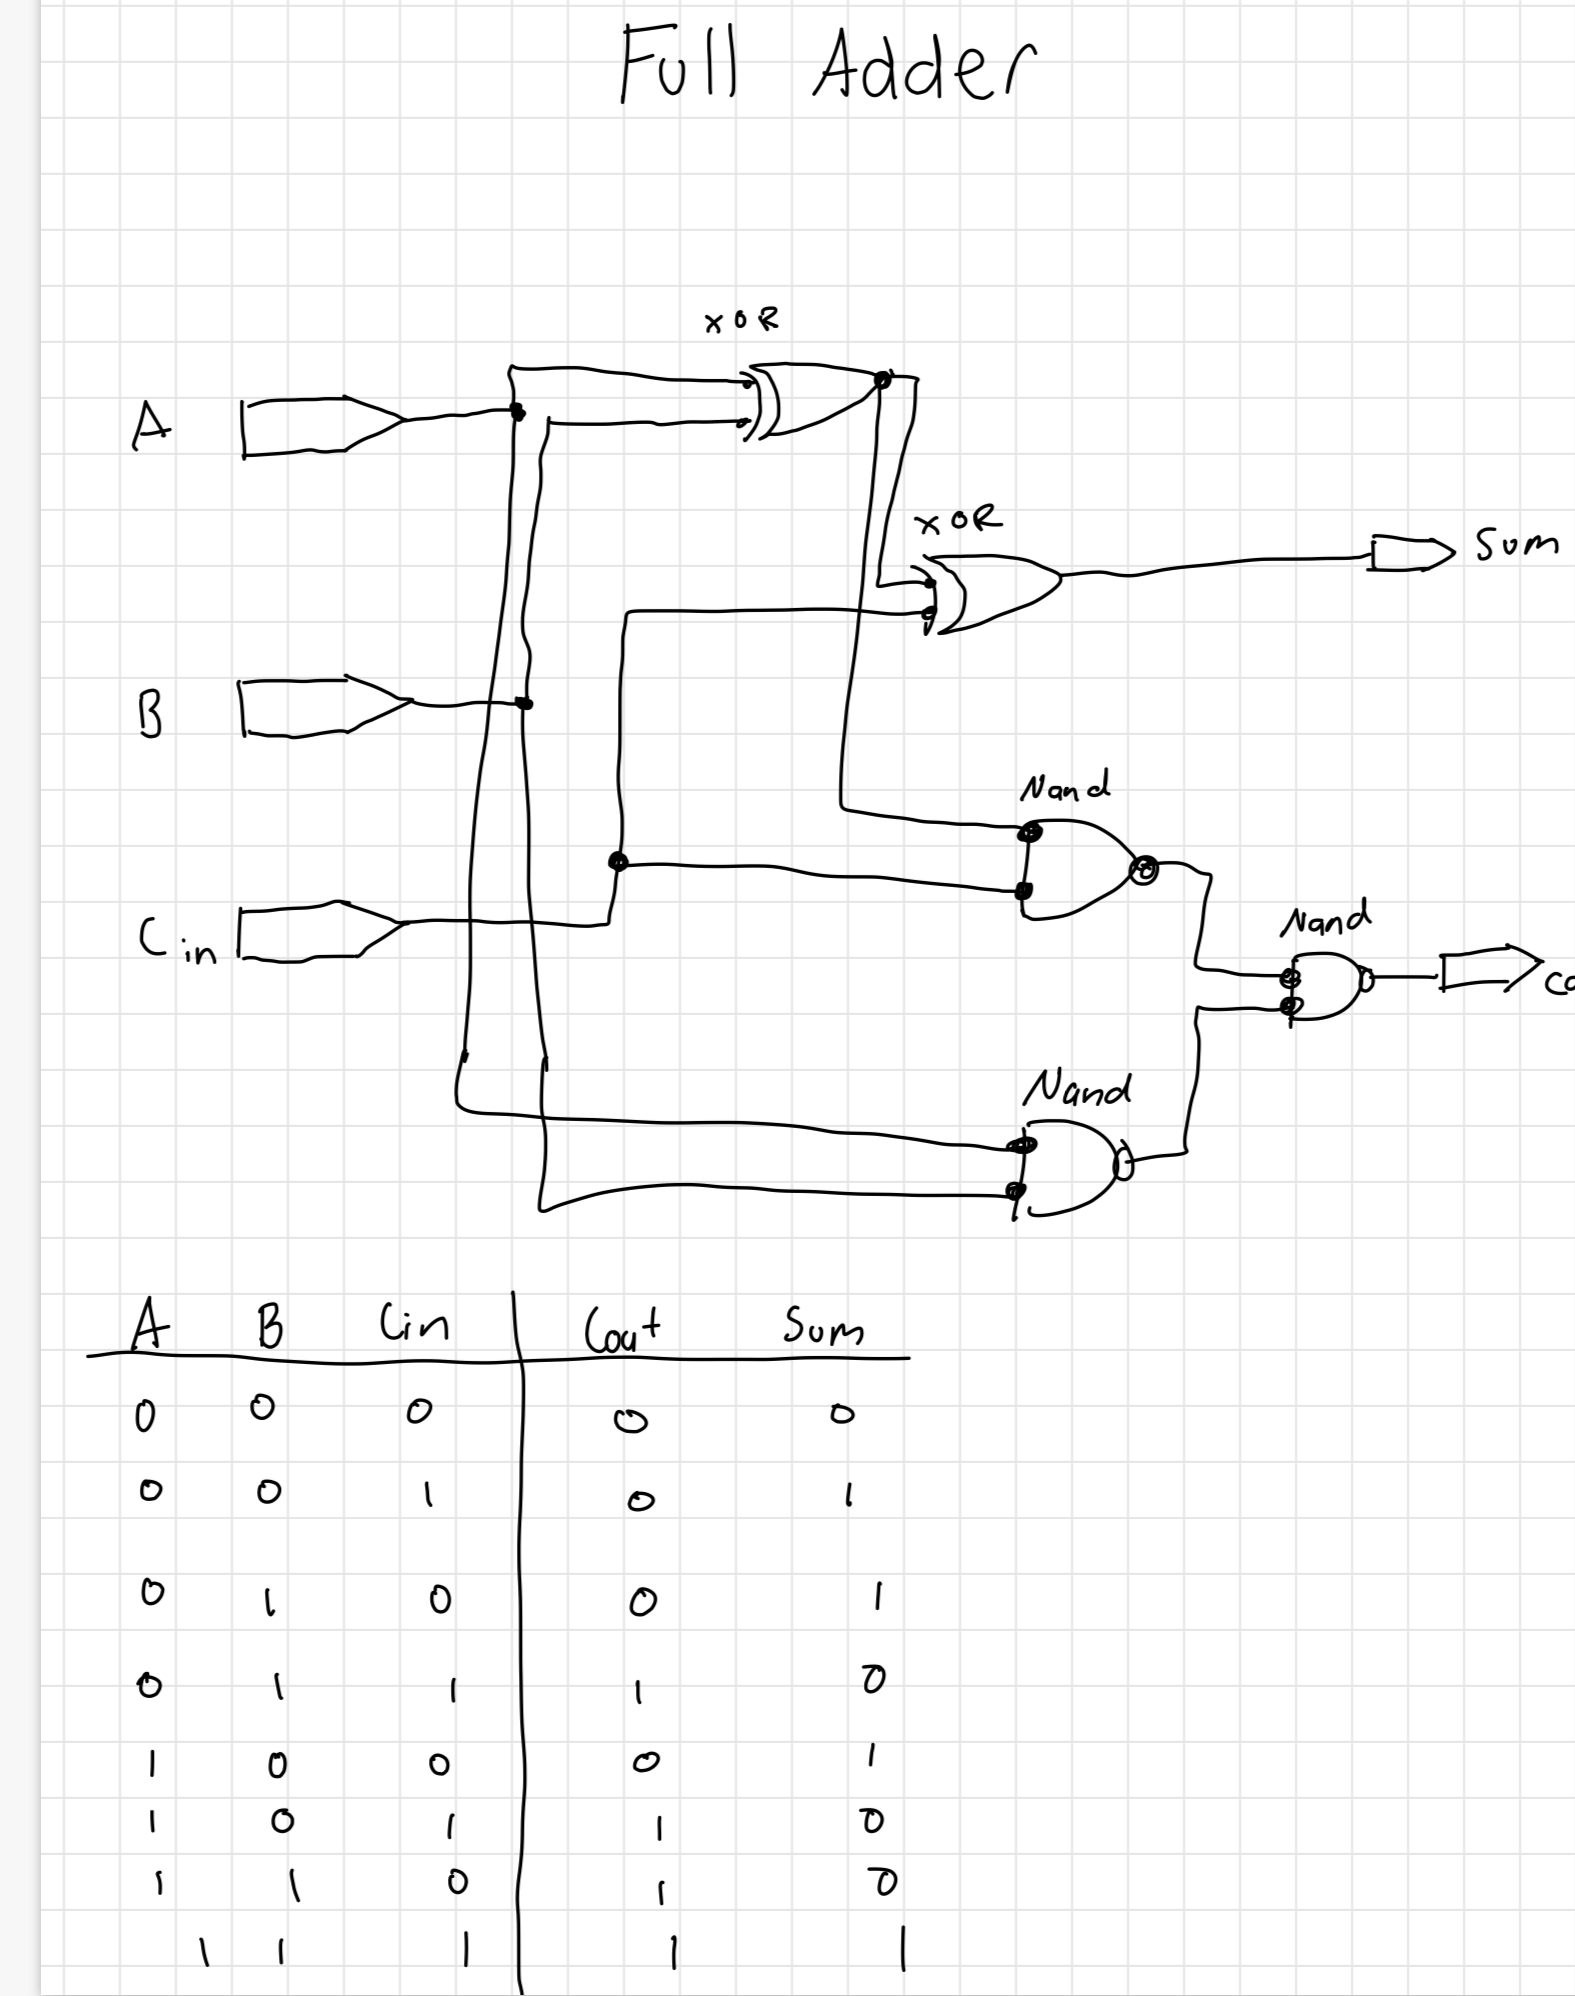 Full Adder
XOR
A
XOR
Sum
B
Nand
Nand
Cin
Co
Nand
A B Cin Cout Sum
0 0 0 0 0
0 0 1 0 1
0 1 0 0 1
0 1 1 1 0
1 0 0 0 1
1 0 1 1 0
1 1 0 1 0
1 1 1 1 1